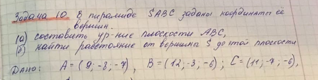 Задача 10. В пирамиде SABC заданы координаты
вершин.
а) составить ур-ние плоскости ABC,
б) найти расстояние от вершины S до этой плоскости
Дано: A = (9; -8; -7), B = (12; -3; -6), C = (11; -7; -6)